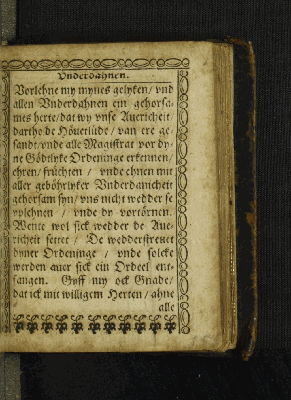 Vnderdahnen.
Vorlehne my mynes gelyken / vnd
allen Vnderdahnen ein gehorsa-
mes herte / dat wy vnse Auericheit
dartho de Höuetlüde / van ere ge-
sandt / vnde alle Magistrat vor dy-
ne Gödtlyke Ordeninge erkennen /
ehren / früchten / vnde ehnen mit
aller geböhrlyker Vnderdanicheit
gehorsam syn / vns nicht wedder se
vplehnen / vnde dy vortörnen.
Wente wol sick wedder de Aue-
richeit settet / De wedderstreuet
dyner Ordeninge / vnde solcke
werden auer sick ein Ordeel ent-
fangen. Giff my ock Gnade /
dat ick mit willigem Herten / ahne
alle